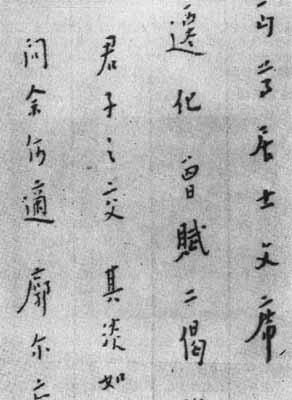 丏尊居士文席
遷化 曾賦二偈
君子之交 其淡如
問余何適 廓尔亡